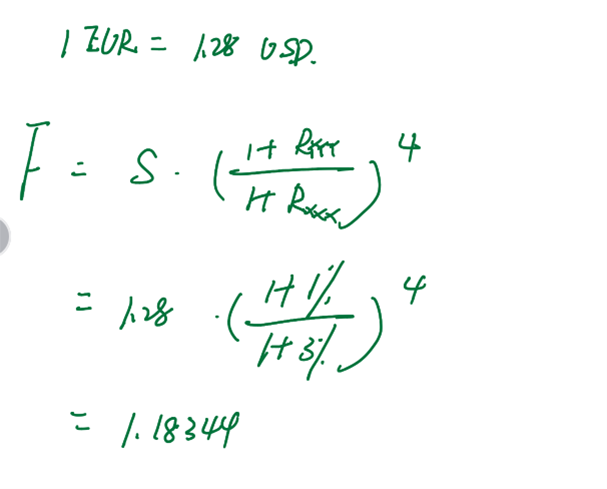 1 EUR = 1.28 USD.
F = S · ( (1+ RYYY) / (1+ RXXX) )^4
= 1.28 · ( (1+1%) / (1+3%) )^4
= 1.18344